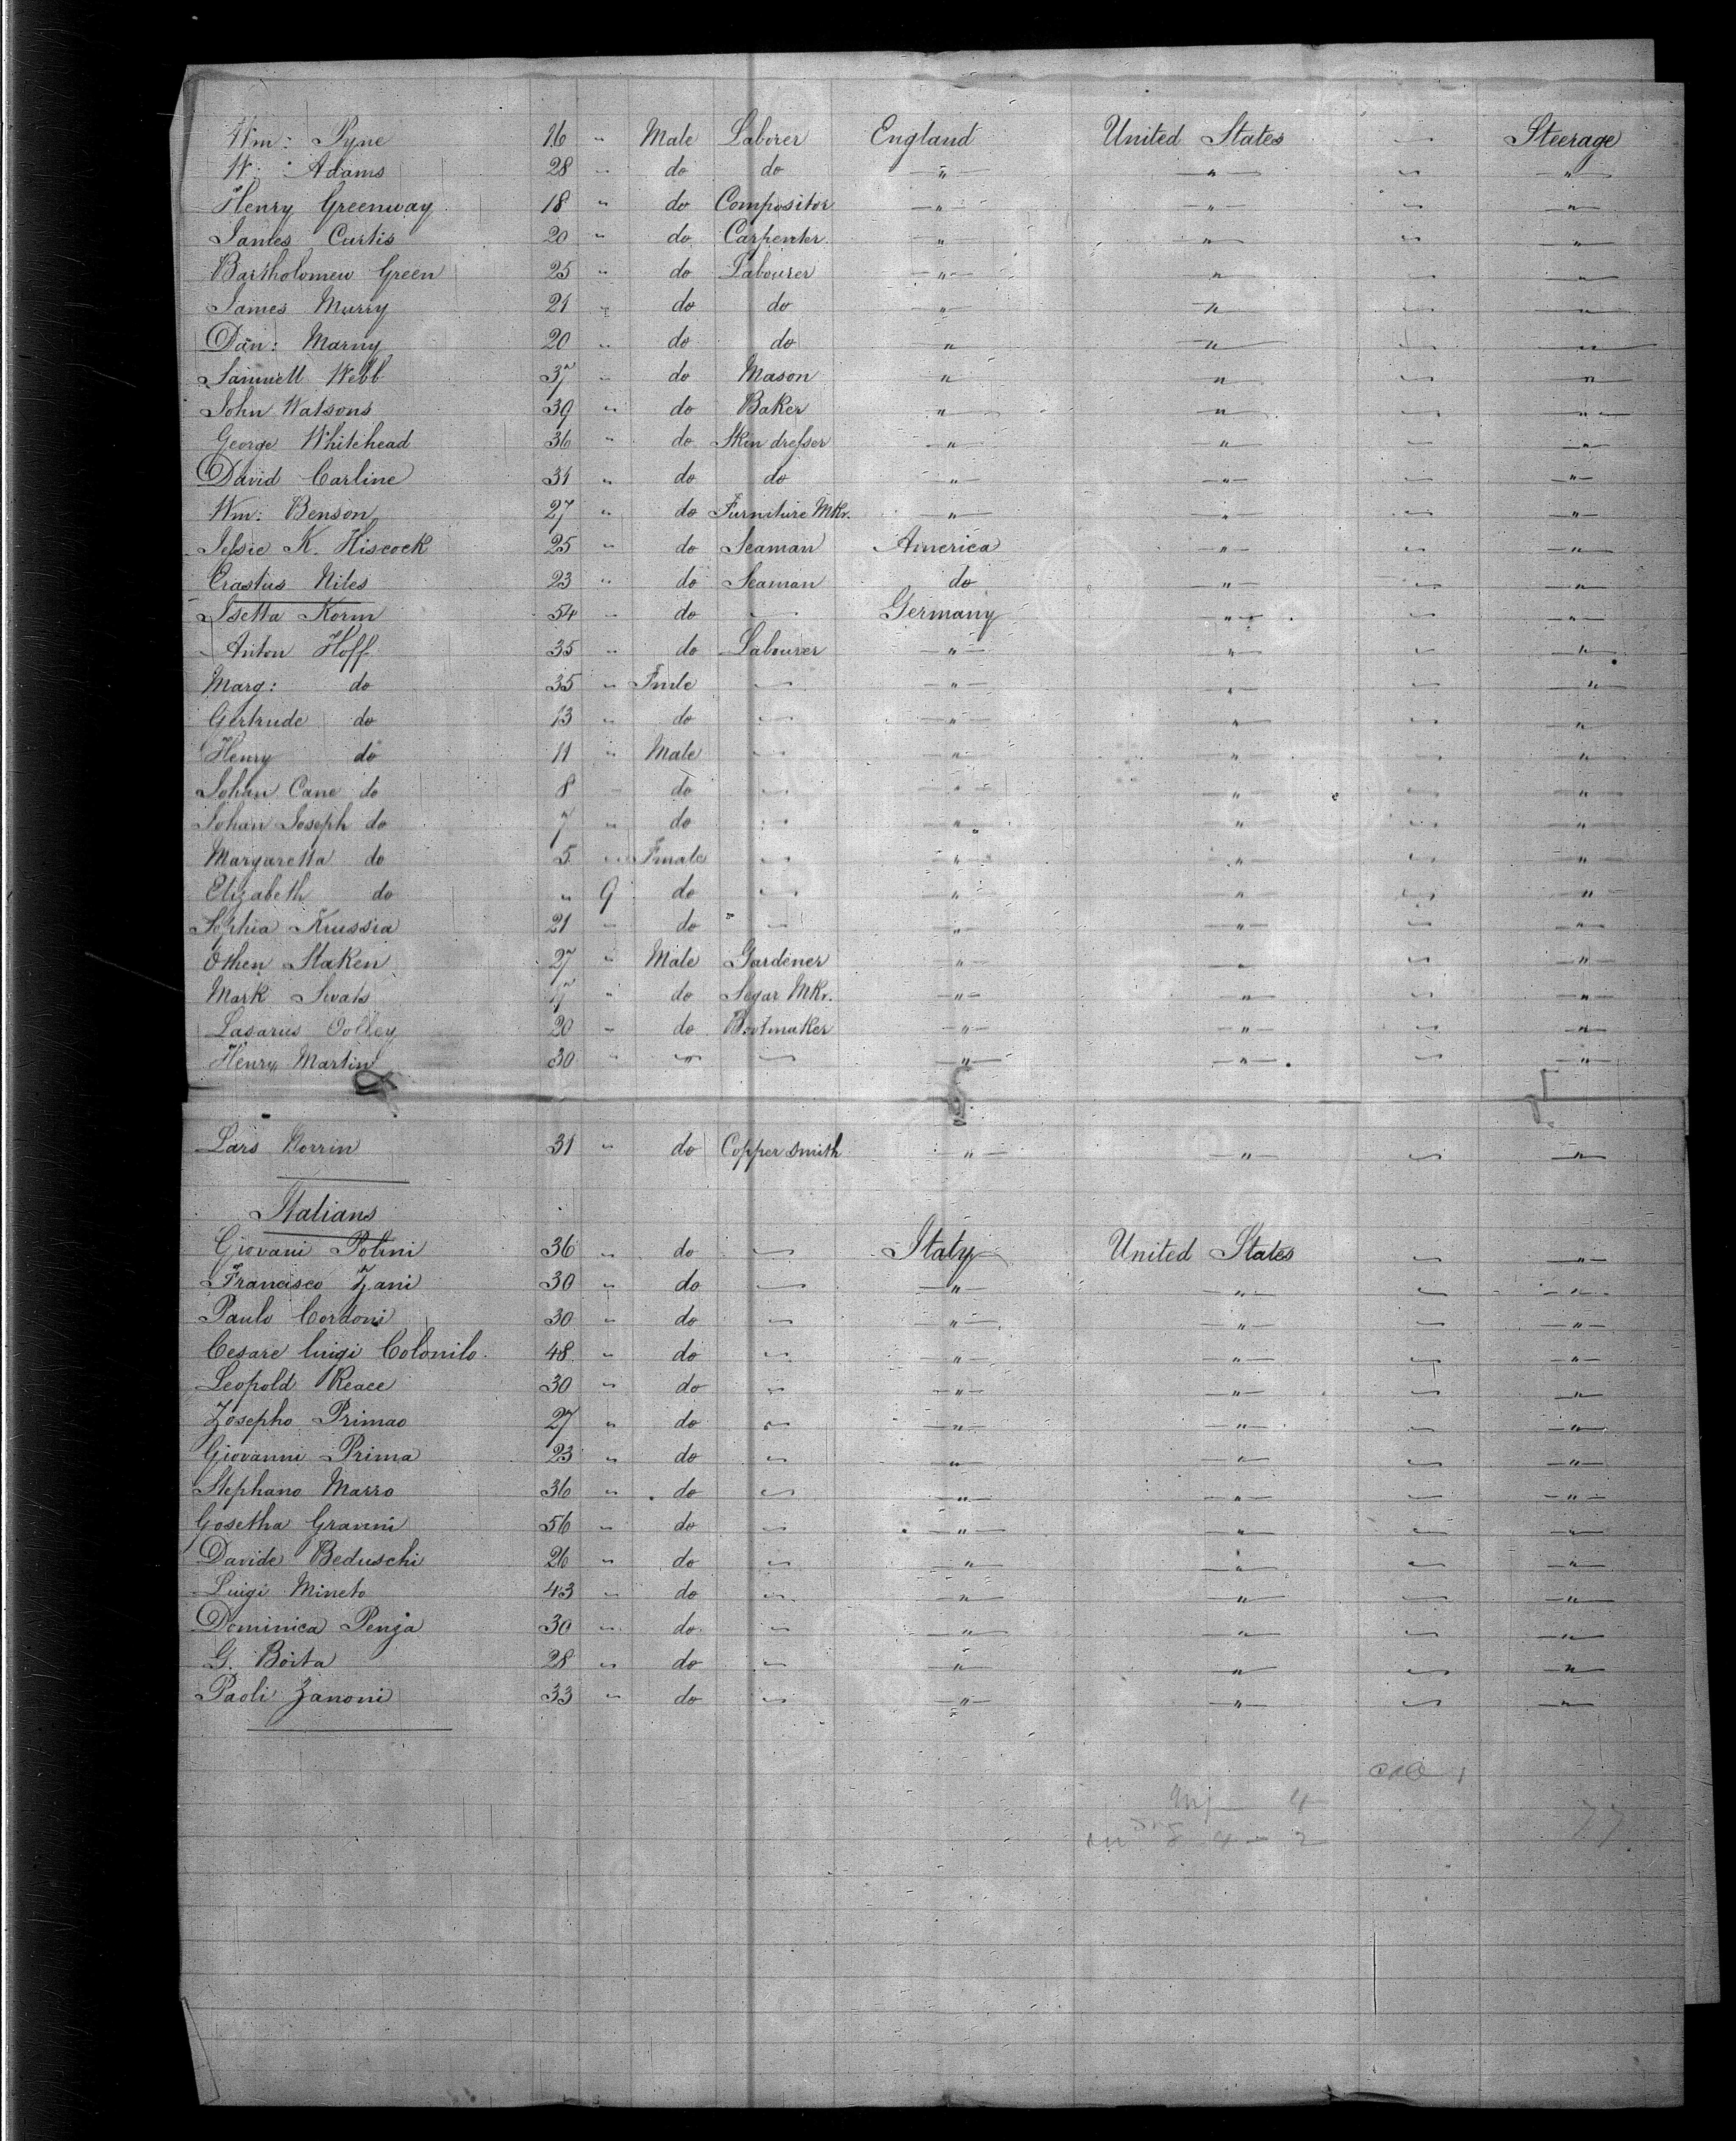 Wm: Pyne 16 " Male Laborer England United States " Steerage
W: Adams 28 " do do " " " "
Henry Greenway 18 " do Compositor " " " "
James Curtis 20 " do Carpenter " " " "
Bartholomew Green 25 " do Labourer " " " "
James Murry 21 " do do " " " "
Dan: Marny 20 " do do " " " "
Samuell Webb 37 " do Mason " " " "
John Watsons 39 " do Baker " " " "
George Whitehead 36 " do Skin dresser " " " "
David Carline 31 " do do " " " "
Wm: Benson 27 " do Furniture Mkr. " " " "
Jessie K. Hiscock 25 " do Seaman America " " "
Erastus Niles 23 " do Seaman do " " "
Isetta Korm 54 " do " Germany " " "
Anton Hoff 35 " do Labourer " " " "
Marg: do 35 " Fmle " " " " "
Gertrude do 13 " do " " " " "
Henry do 11 " Male " " " " "
Johan Cane do 8 " do " " " " "
Johan Joseph do 7 " do " " " " "
Margaretta do 5 " Fmale " " " " "
Elizabeth do " 9 do " " " " "
Sophia Krussia 21 " do " " " " "
Othen Staken 27 " Male Gardener " " " "
Mark Swats " do Segar Mkr. " " " "
Lasarus Oolley 20 " do Bootmaker " " " "
Henry Martin 30 " " " " " " "
Lars Norrin 31 " do Copper smith " " " "
Italians
Giovani Polini 36 " do " Italy United States " "
Francisco Zani 30 " do " " " " "
Paulo Cordoni 30 " do " " " " "
Cesare luigi Colonilo 48 " do " " " " "
Leopold Reace 30 " do " " " " "
Zosepho Primao 27 " do " " " " "
Giovanni Prima 23 " do " " " " "
Stephano Marro 36 " do " " " " "
Gosetha Gravini 56 " do " " " " "
Davide Beduschi 26 " do " " " " "
Luigi Mineto 43 " do " " " " "
Dominica Penza 30 " do " " " " "
G. Boita 28 " do " " " " "
Paoli Zanoni 33 " do " " " " "
77